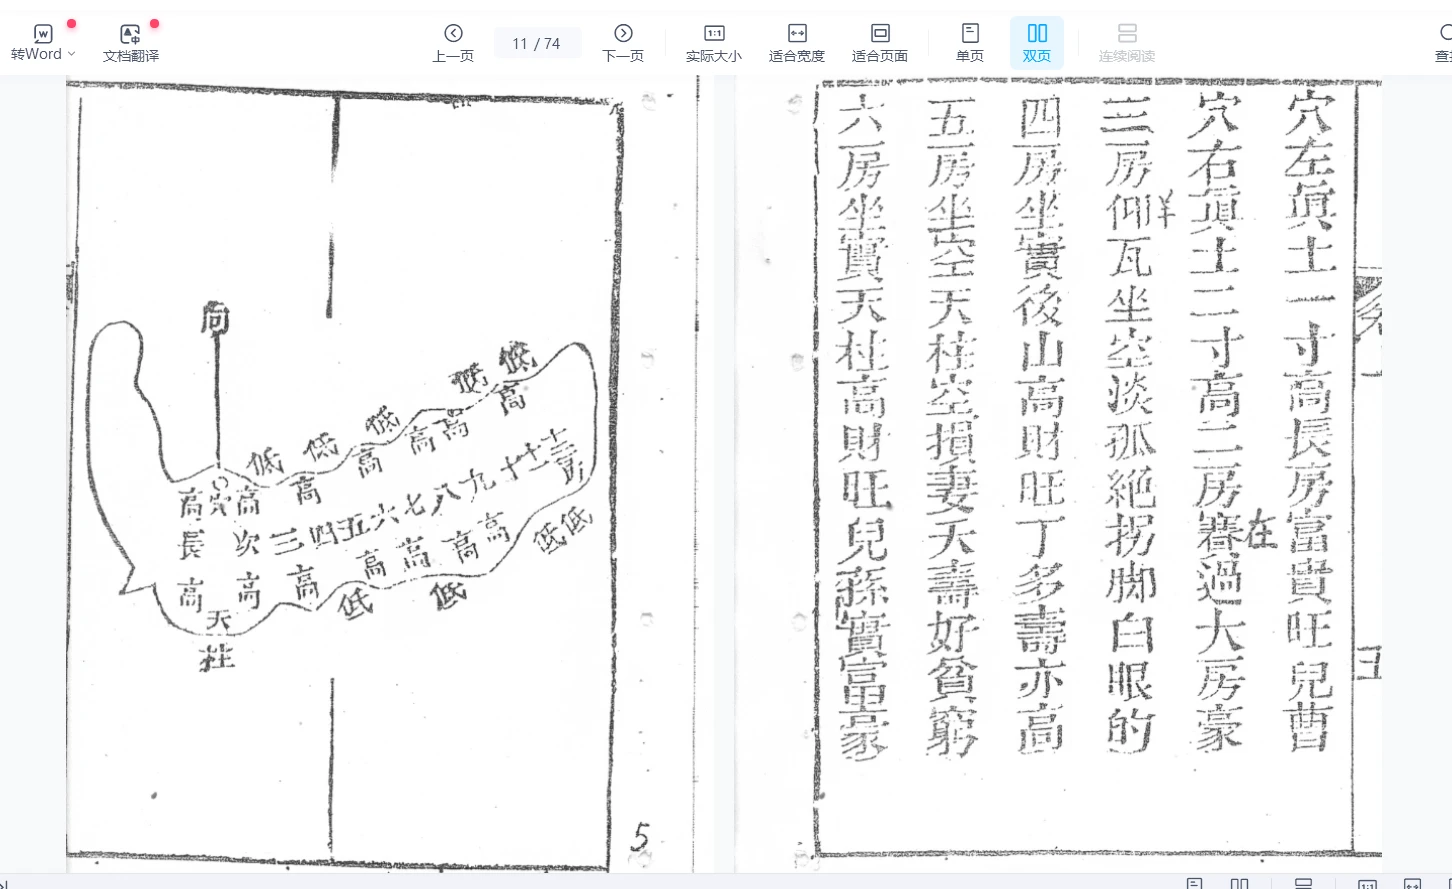 转Word
文档翻译
上一页
11 / 74
下一页
1:1
实际大小
适合宽度
适合页面
单页
双页
连续阅读
穴左眞土一寸高長房富貴旺兒曹
穴右眞土二寸高二房賽過大房豪
在
三房仰瓦坐空淡孤絕拐脚白眼的
羊
四房坐實後山高財旺丁多壽亦高
五房坐空天柱空損妻夭壽好貧窮
六房坐實天柱高財旺兒孫實富豪
向
低 低 低 低 低
高 穴 高 高 高 高 高 高
長 次 三 四 五 六 七 八 九 十 十二
高 高 高 高 高 高 高
低 低 低 低
天柱
5
1:1